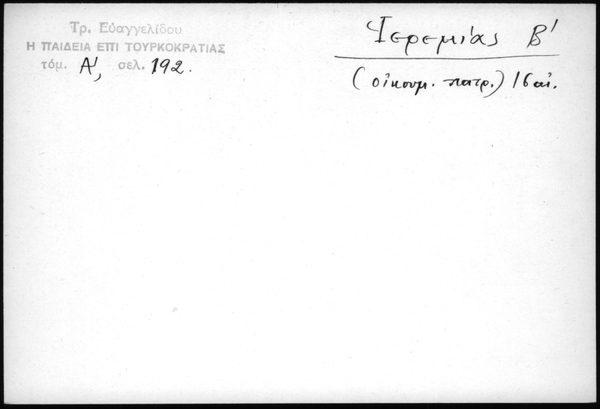 Τρ. Εὐαγγελίδου
Η ΠΑΙΔΕΙΑ ΕΠΙ ΤΟΥΡΚΟΚΡΑΤΙΑΣ
τόμ. Α', σελ. 192.
Ἱερεμίας Β'
(οἰκουμ. πατρ.) 16 αἰ.